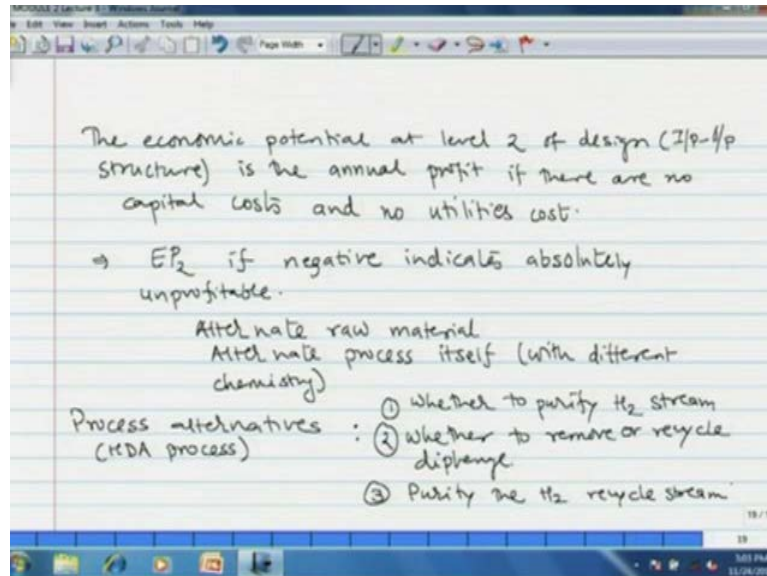 MODULE 2 Lecture 3 - Windows Journal
Edit View Insert Actions Tools Help
Page Width
The economic potential at level 2 of design (I/p-o/p
structure) is the annual profit if there are no
capital costs and no utilities cost.
⇒ EP2 if negative indicates absolutely
unprofitable.
Alternate raw material
Alternate process itself (with different
chemistry)
Process alternatives :
(HDA process)
① Whether to purify H2 stream
② Whether to remove or recycle
diphenyl
③ Purify the H2 recycle stream
19 / 
19
5:03 PM
11/24/20